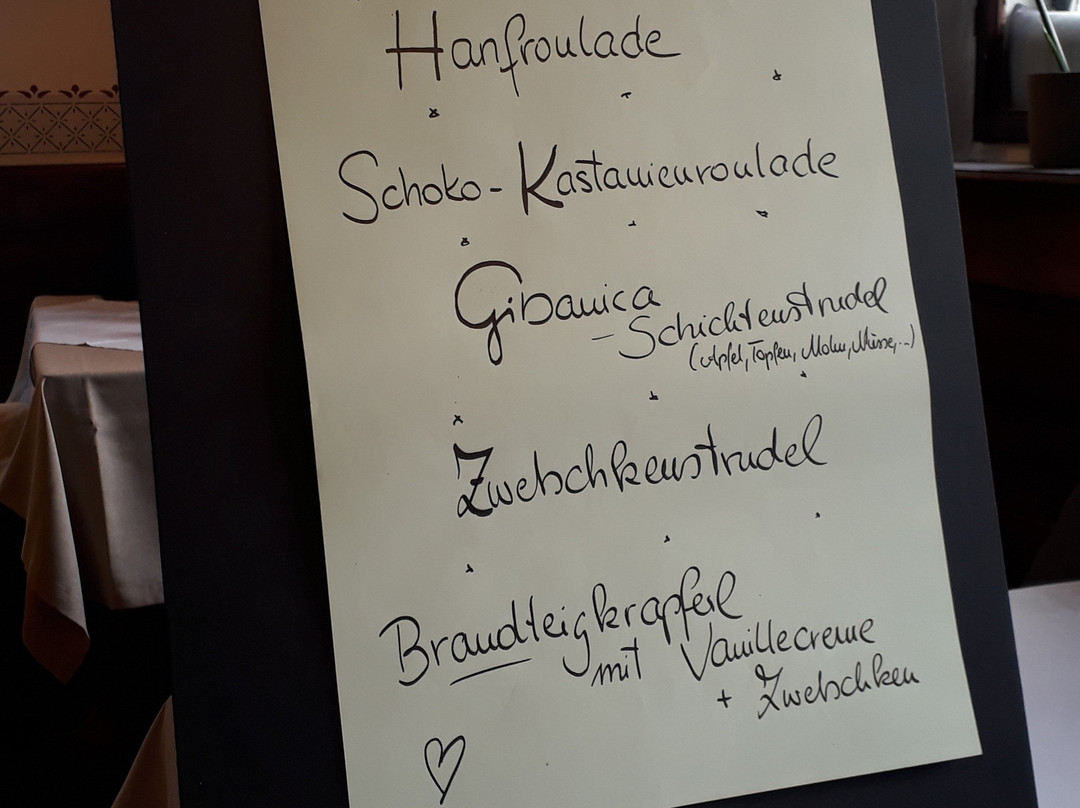 Hanfroulade
Schoko-Kastanienroulade
Gibanica
- Schichtenstrudel
(Apfel, Topfen, Mohn, Nüsse,...)
Zwetschkenstrudel
Brandteigkrapferl
mit Vanillecreme
+ Zwetschken